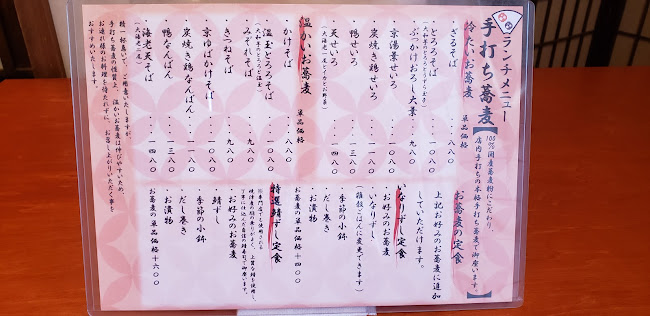 ランチメニュー
手打ち蕎麦
【100%国産蕎麦粉にこだわり、
店内手打ちの本格手打ち蕎麦で御座います。】
冷たいお蕎麦 単品価格
ざるそば ・・・・八八〇
とろろそば ・・・・九八〇
(大和芋のとろろとうずら玉子)
ぶっかけおろし大葉 ・・九八〇
京湯葉せいろ ・・・一〇八〇
炭焼き鶏せいろ ・・・一〇八〇
鴨せいろ ・・・一三八〇
天せいろ ・・・一四八〇
温かいお蕎麦 単品価格
かけそば ・・・・八八〇
温玉とろろそば ・・・一〇八〇
(大和芋のとろろと温玉)
みぞれそば ・・・・九八〇
きつねそば ・・・・九八〇
京ゆばかけそば ・・・一〇八〇
炭焼き鶏なんばん ・・一〇八〇
鴨なんばん ・・・一三八〇
海老天そば ・・・一四八〇
(大海老一尾)
精一杯急いで、ご用意いたしますが、
手打ち蕎麦の性質上、温かいお蕎麦は伸びやすいため、
お連れ様のお料理を待たれずに、お召し上がりいただく事を
おすすめいたします。
お蕎麦の定食
上記お好みのお蕎麦に追加
していただけます。
いなりずし定食
・お好みのお蕎麦
・いなりずし
(雑穀ごはんに変更できます)
・季節の小鉢
・だし巻き
・お漬物
お蕎麦の単品価格+四〇〇
特選鯖ずし定食
・お好みのお蕎麦
・鯖ずし
・季節の小鉢
・だし巻き
・お漬物
お蕎麦の単品価格+六〇〇